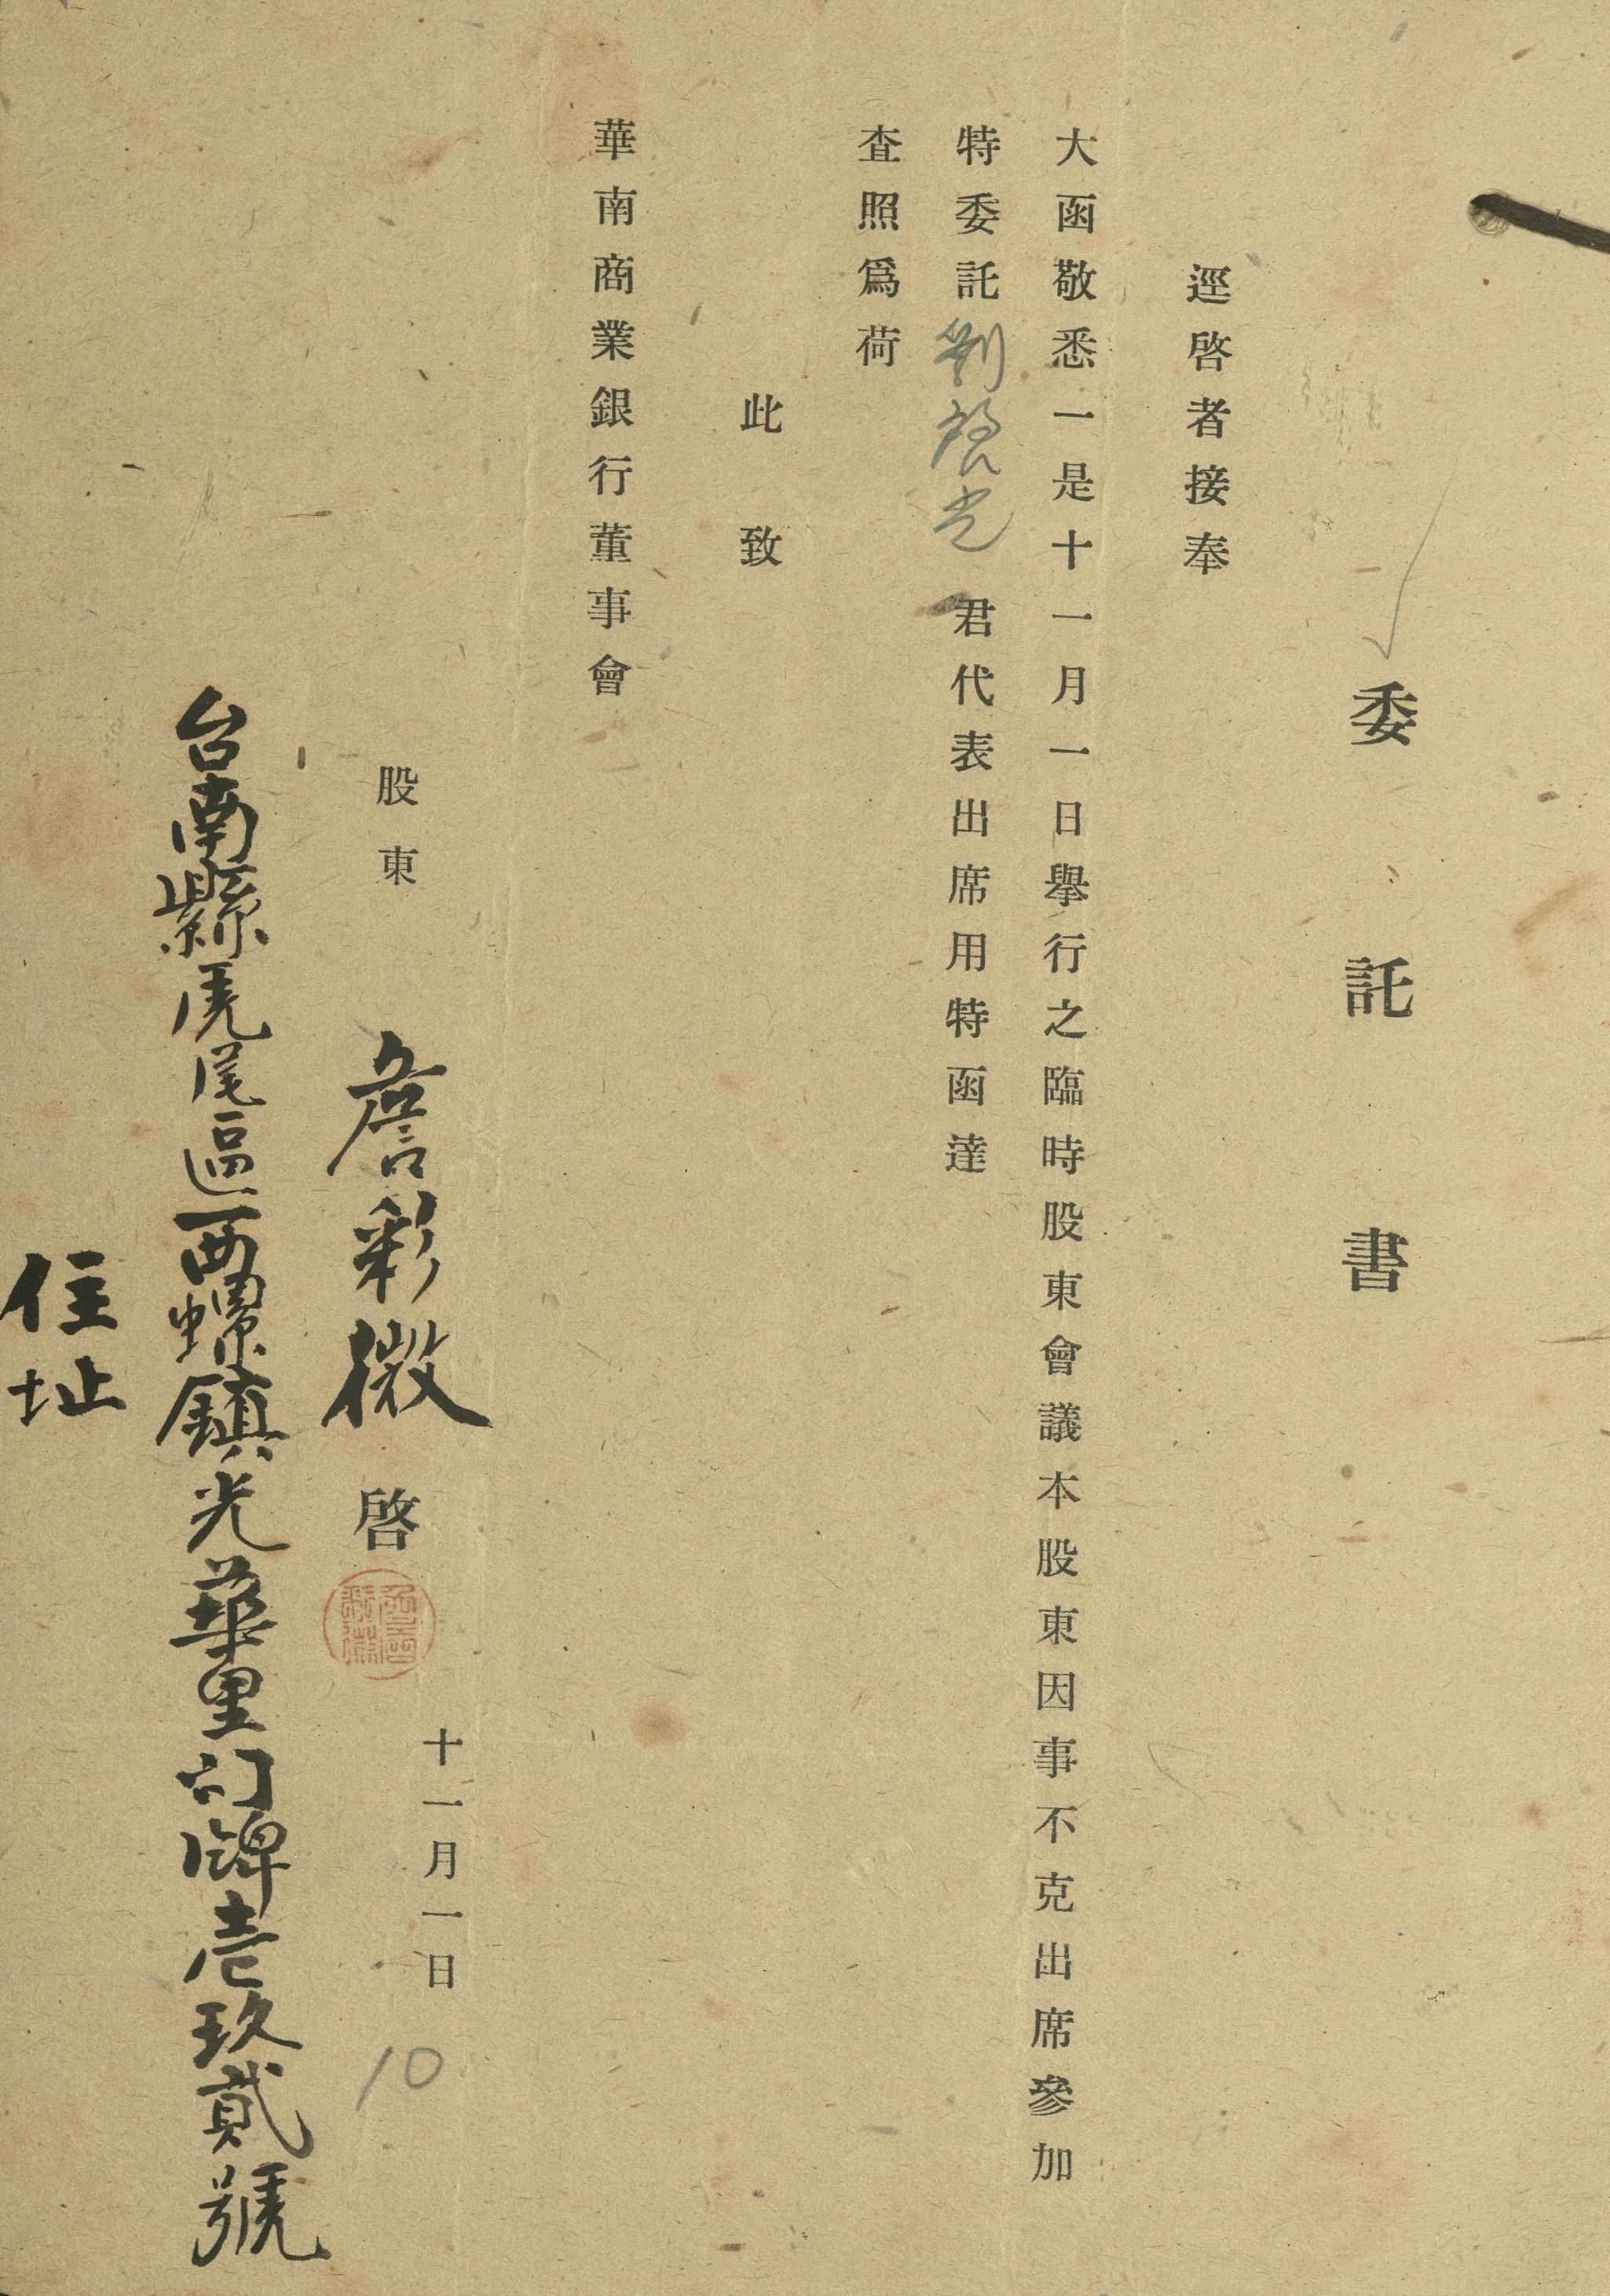 委託書
逕啓者接奉
大函敬悉一是十一月一日舉行之臨時股東會議本股東因事不克出席參加
特委託劉啓光君代表出席用特函達
查照爲荷
此致
華南商業銀行董事會
十一月一日
10
股東 詹彩微 啓
台南縣虎尾區西螺鎮光華里門牌壱玖貳號
住址